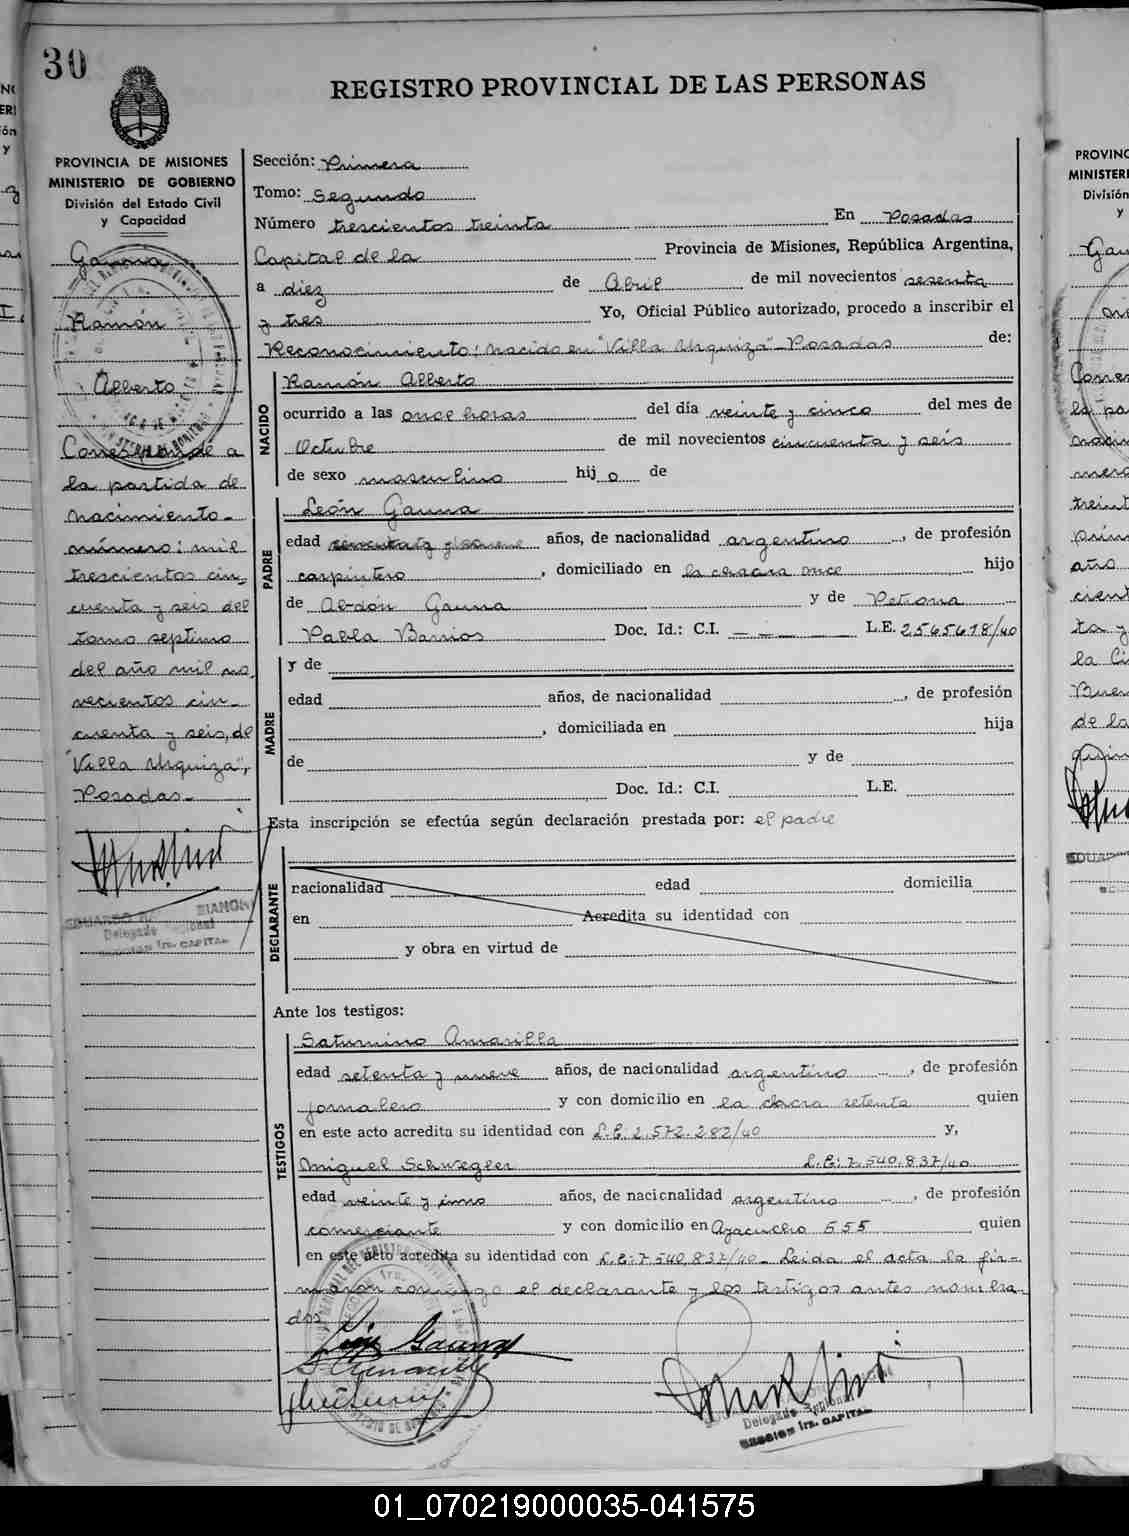 30
REGISTRO PROVINCIAL DE LAS PERSONAS
PROVINCIA DE MISIONES
MINISTERIO DE GOBIERNO
División del Estado Civil
y Capacidad
Gauna
Ramón
Alberto
Corresponde a
la partida de
nacimiento-
número: mil
trescientos cin-
cuenta y seis del
tomo septimo
del año mil no-
vecientos cin-
cuenta y seis, de
"Villa Urquiza",
Posadas.-
EDUARDO
Delegado Regional
SECCION 1ra. CAPITAL
Sección: Primera
Tomo: Segundo
Número trescientos treinta En Posadas
Capital de la Provincia de Misiones, República Argentina,
a diez de Abril de mil novecientos sesenta
y tres Yo, Oficial Público autorizado, procedo a inscribir el
Reconocimiento: nacido en "Villa Urquiza"-Posadas de:
NACIDO
Ramón Alberto
ocurrido a las once horas del día veinte y cinco del mes de
Octubre de mil novecientos cincuenta y seis
de sexo masculino hij o de
PADRE
León Gauna
edad años, de nacionalidad argentino, de profesión
carpintero, domiciliado en la chacra once hijo
de Abdón Gauna y de Petrona
Pabla Barrios Doc. Id.: C.I. — L.E. 2565618/40
MADRE
y de
edad años, de nacionalidad , de profesión
, domiciliada en hija
de y de
Doc. Id.: C.I. L.E.
Esta inscripción se efectúa según declaración prestada por: el padre
DECLARANTE
nacionalidad edad domicilia
en Acredita su identidad con
y obra en virtud de
Ante los testigos:
TESTIGOS
Saturnino Amarilla
edad setenta y nueve años, de nacionalidad argentino, de profesión
jornalero y con domicilio en la chacra setenta quien
en este acto acredita su identidad con L.E: 2.572.282/40 y,
Miguel Schwegler L.E: 7.540.837/40
edad veinte y uno años, de nacionalidad argentino, de profesión
comerciante y con domicilio en Ayacucho 655 quien
en este acto acredita su identidad con L.E: 7.540.837/40- Leida el acta la fir-
maron conmigo el declarante y los testigos antes nombra-
dos
Gauna
S Amarilla
Delegado Regional
SECCION 1ra. CAPITAL
01_070219000035-041575